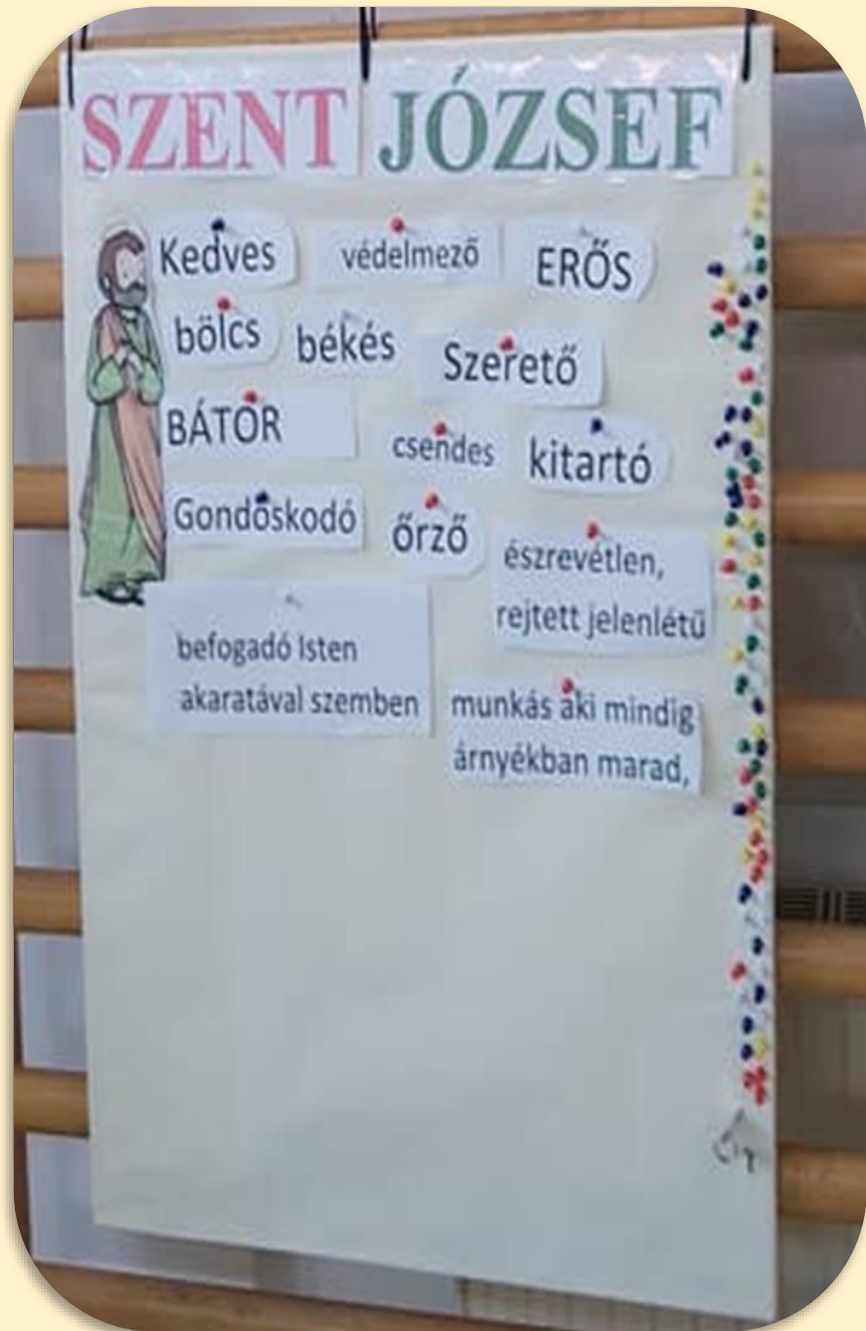 SZENT JÓZSEF
Kedves védelmező ERŐS
bölcs békés Szerető
BÁTOR csendes kitartó
Gondoskodó őrző
észrevétlen,
rejtett jelenlétű
befogadó Isten
akaratával szemben
munkás aki mindig
árnyékban marad,